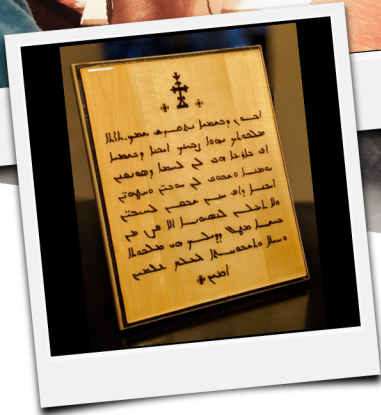 ܐܒܘܢ ܕܒܫܡܝܐ ܢܬܩܕܫ ܫܡܟ ܬܐܬܐ
ܡܠܟܘܬܟ ܢܗܘܐ ܨܒܝܢܟ ܐܝܟܢܐ ܕܒܫܡܝܐ
ܐܦ ܒܐܪܥܐ ܗܒ ܠܢ ܠܚܡܐ ܕܣܘܢܩܢܢ
ܝܘܡܢܐ ܘܫܒܘܩ ܠܢ ܚܘܒܝܢ ܘܚܛܗܝܢ
ܐܝܟܢܐ ܕܐܦ ܚܢܢ ܫܒܩܢ ܠܚܝܒܝܢ
ܘܠܐ ܬܥܠܢ ܠܢܣܝܘܢܐ ܐܠܐ ܦܨܢ ܡܢ
ܒܝܫܐ ܡܛܠ ܕܕܝܠܟ ܗܝ ܡܠܟܘܬܐ
ܘܚܝܠܐ ܘܬܫܒܘܚܬܐ ܠܥܠܡ ܥܠܡܝܢ
ܐܡܝܢ